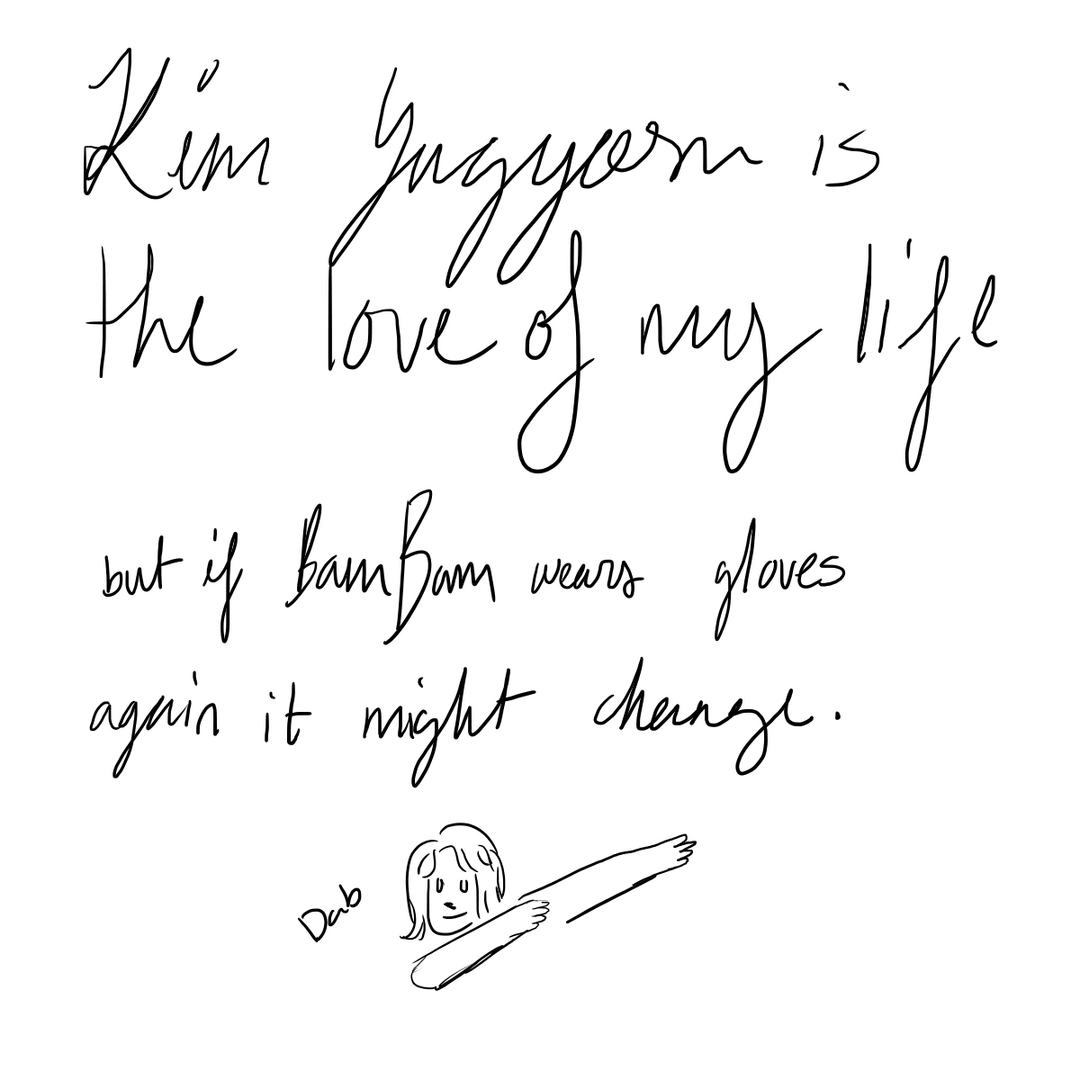 Kim Yugyeom is
the love of my life
but if BamBam wears gloves
again it might change.
Dab